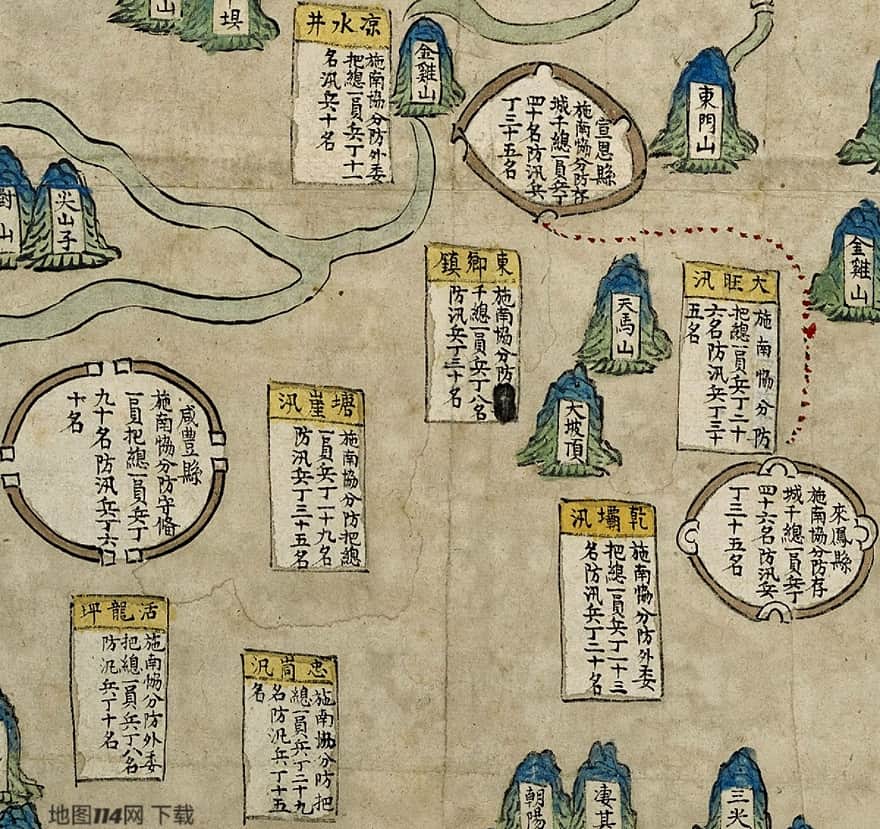 山
埧
凉水井
施南協分防外委
把總一員兵丁十一
名汛兵十名
金雞山
宣恩縣
施南協分防存
城千總一員兵丁
四十名防汛兵
丁三十五名
東門山
對山
尖山子
東鄉鎮
施南協分防
千總一員兵丁八名
防汛兵丁三十名
天馬山
大旺汛
施南協分防
把總一員兵丁二十
六名防汛兵丁三十
五名
金雞山
咸豐縣
施南協分防守偹
一員把總一員兵丁
九十名防汛兵丁六
十名
塘崖汛
施南協分防把總
一員兵丁一十九名
防汛兵丁三十五名
大坡頂
來鳳縣
施南協分防存
城千總一員兵丁
四十六名防汛兵
丁三十五名
乾壩汛
施南協分防外委
把總一員兵丁一十三
名防汛兵丁二十名
活龍坪
施南協分防外委
把總一員兵丁八名
防汛兵丁十名
忠峝汛
施南協分防把
總一員兵丁二十九
名防汛兵丁十五
名
朝陽
淒其
三尖
地图114网 下载